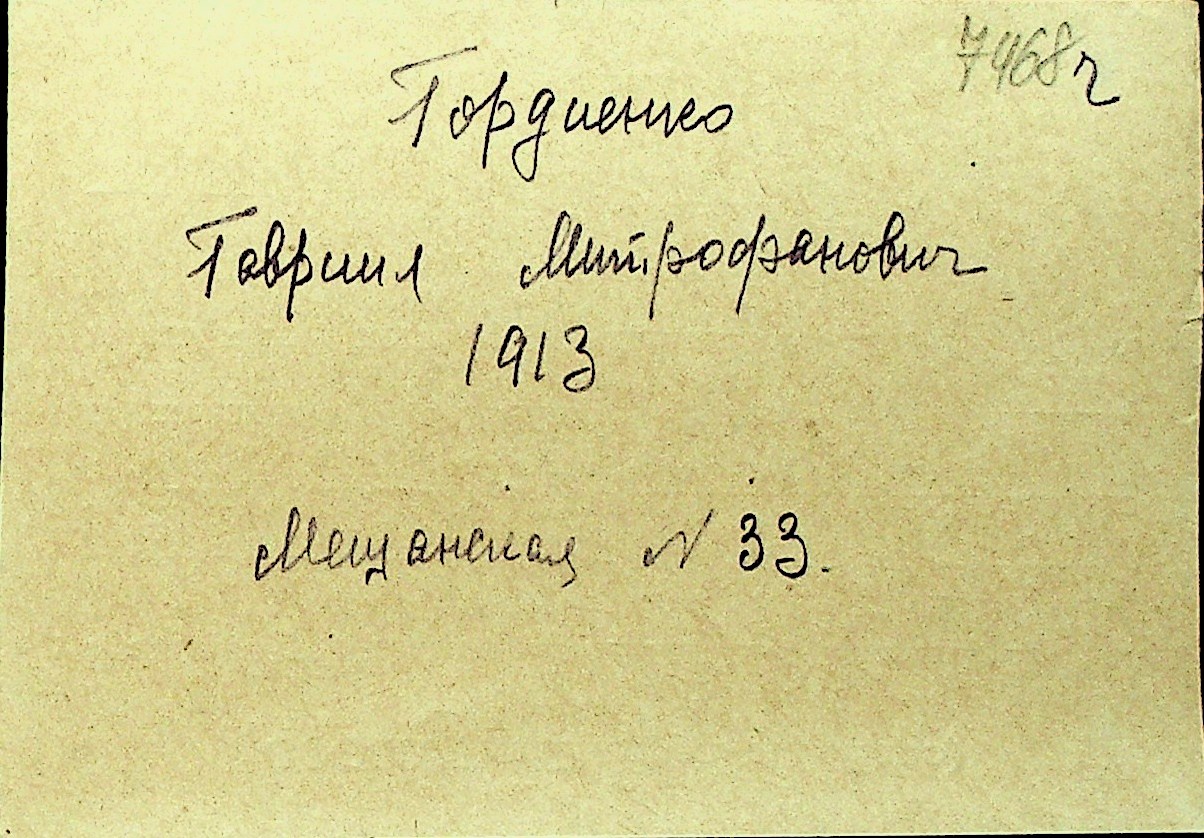 7468 ч
Гордиенко
Гавриил Митрофанович
1913
Мещанская N 33.